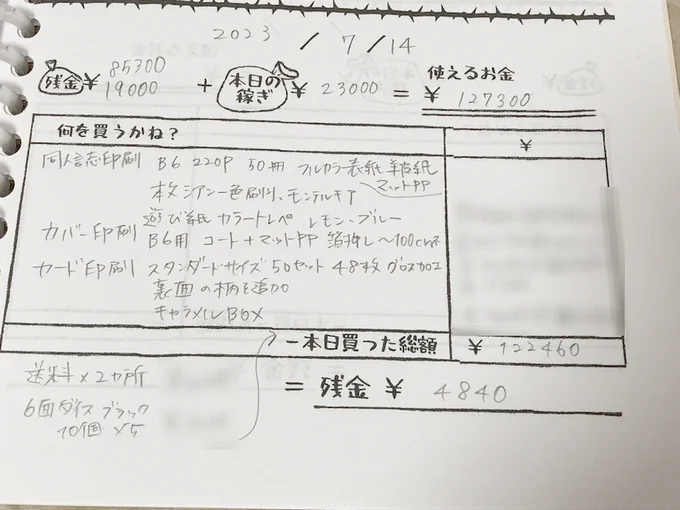 2023 / 7 / 14
残金 ¥ 85300 19000 + 本日の稼ぎ ¥ 23000 = 使えるお金 ¥ 127300
何を買うかね? ¥
同人誌印刷 B6 220P 50冊 フルカラー表紙 羊皮紙
マットPP
本文シアン一色刷り、モンテルキア
遊び紙 カラートレペ レモン・ブルー
カバー印刷 B6用 コート+マットPP 箔押し〜100cm²
カード印刷 スタンダードサイズ 50セット 48枚 グロス加工
裏面の柄を追加
キャラメルBOX
−本日買った総額 ¥ 122460
送料×2カ所
= 残金 ¥ 4840
6面ダイス ブラック
10個 ×5